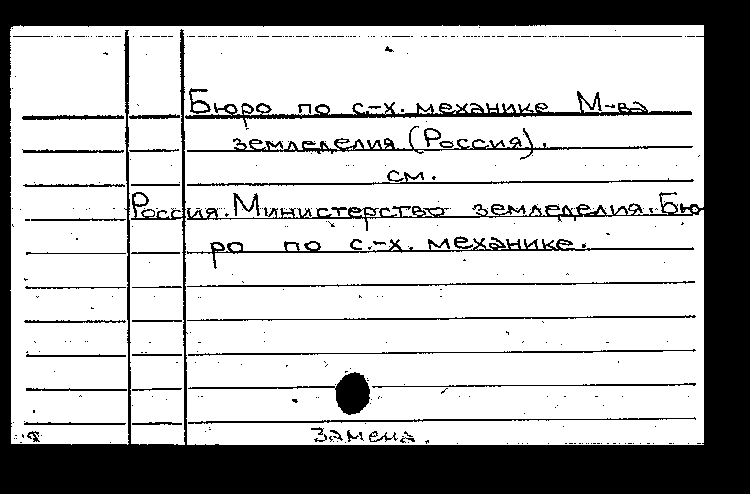 Бюро по с-х. механике М-ва
земледелия (Россия).
см.
Россия. Министерство земледелия. Бю
ро по с.-х. механике.
Замена.